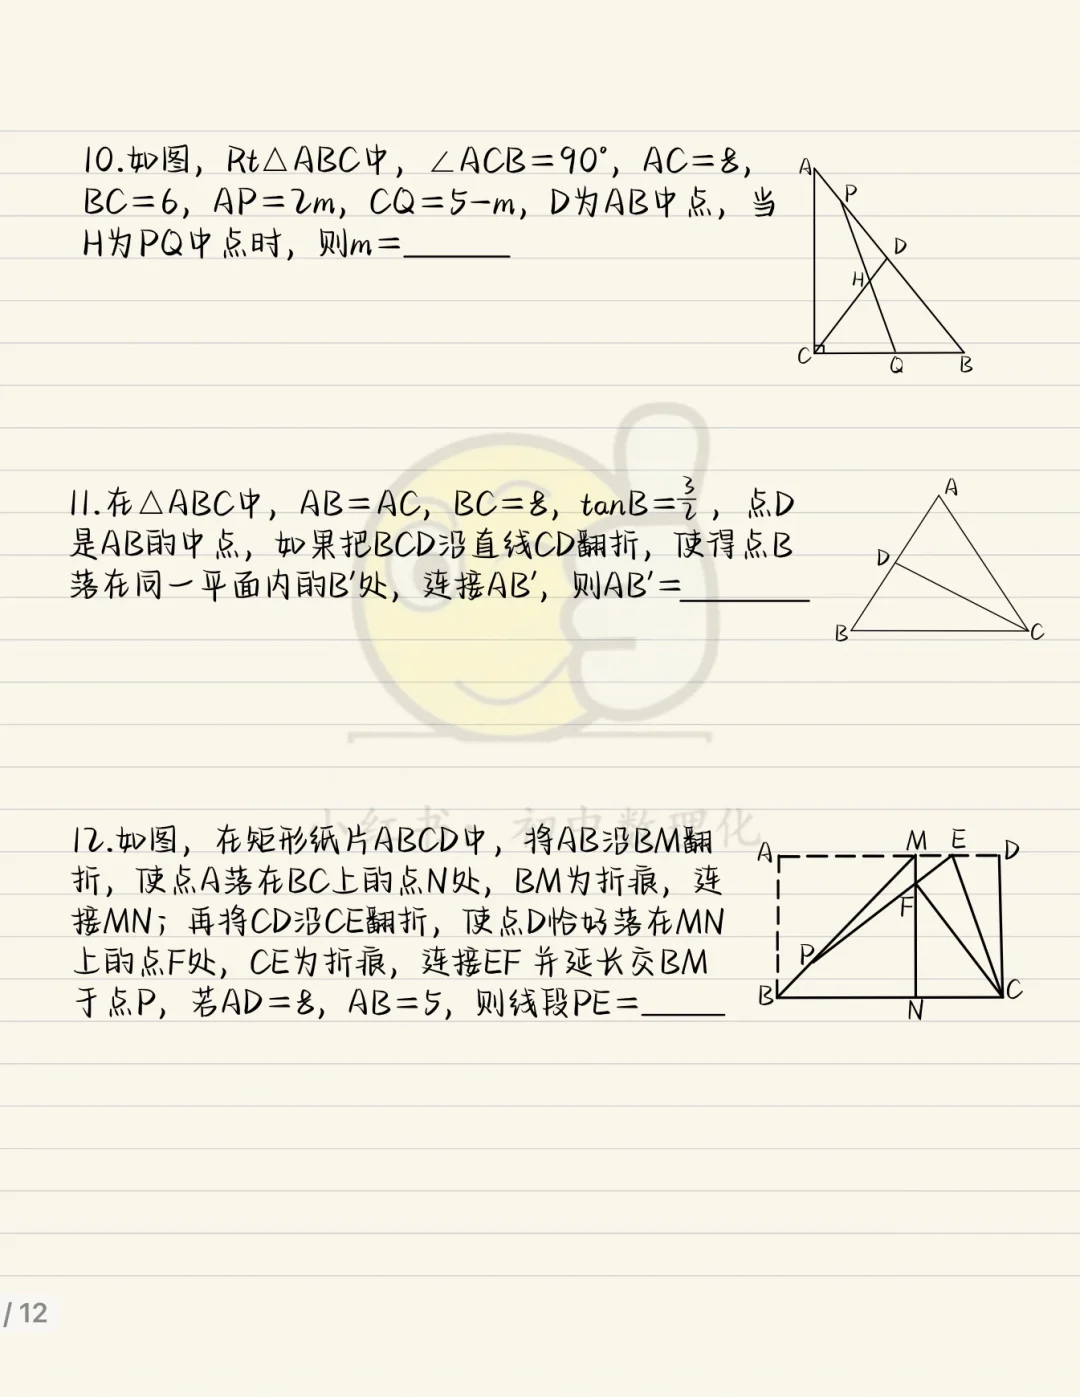 10.如图，Rt△ABC中，∠ACB=90°，AC=8，
BC=6，AP=2m，CQ=5-m，D为AB中点，当
H为PQ中点时，则m=______
A
P
D
H
C
Q
B
11.在△ABC中，AB=AC，BC=8，tanB=3/2，点D
是AB的中点，如果把BCD沿直线CD翻折，使得点B
落在同一平面内的B′处，连接AB′，则AB′=________
A
D
B
C
小红书：初中数理化
12.如图，在矩形纸片ABCD中，将AB沿BM翻
折，使点A落在BC上的点N处，BM为折痕，连
接MN；再将CD沿CE翻折，使点D恰好落在MN
上的点F处，CE为折痕，连接EF并延长交BM
于点P，若AD=8，AB=5，则线段PE=_____
A
M
E
D
F
P
B
N
C
/ 12